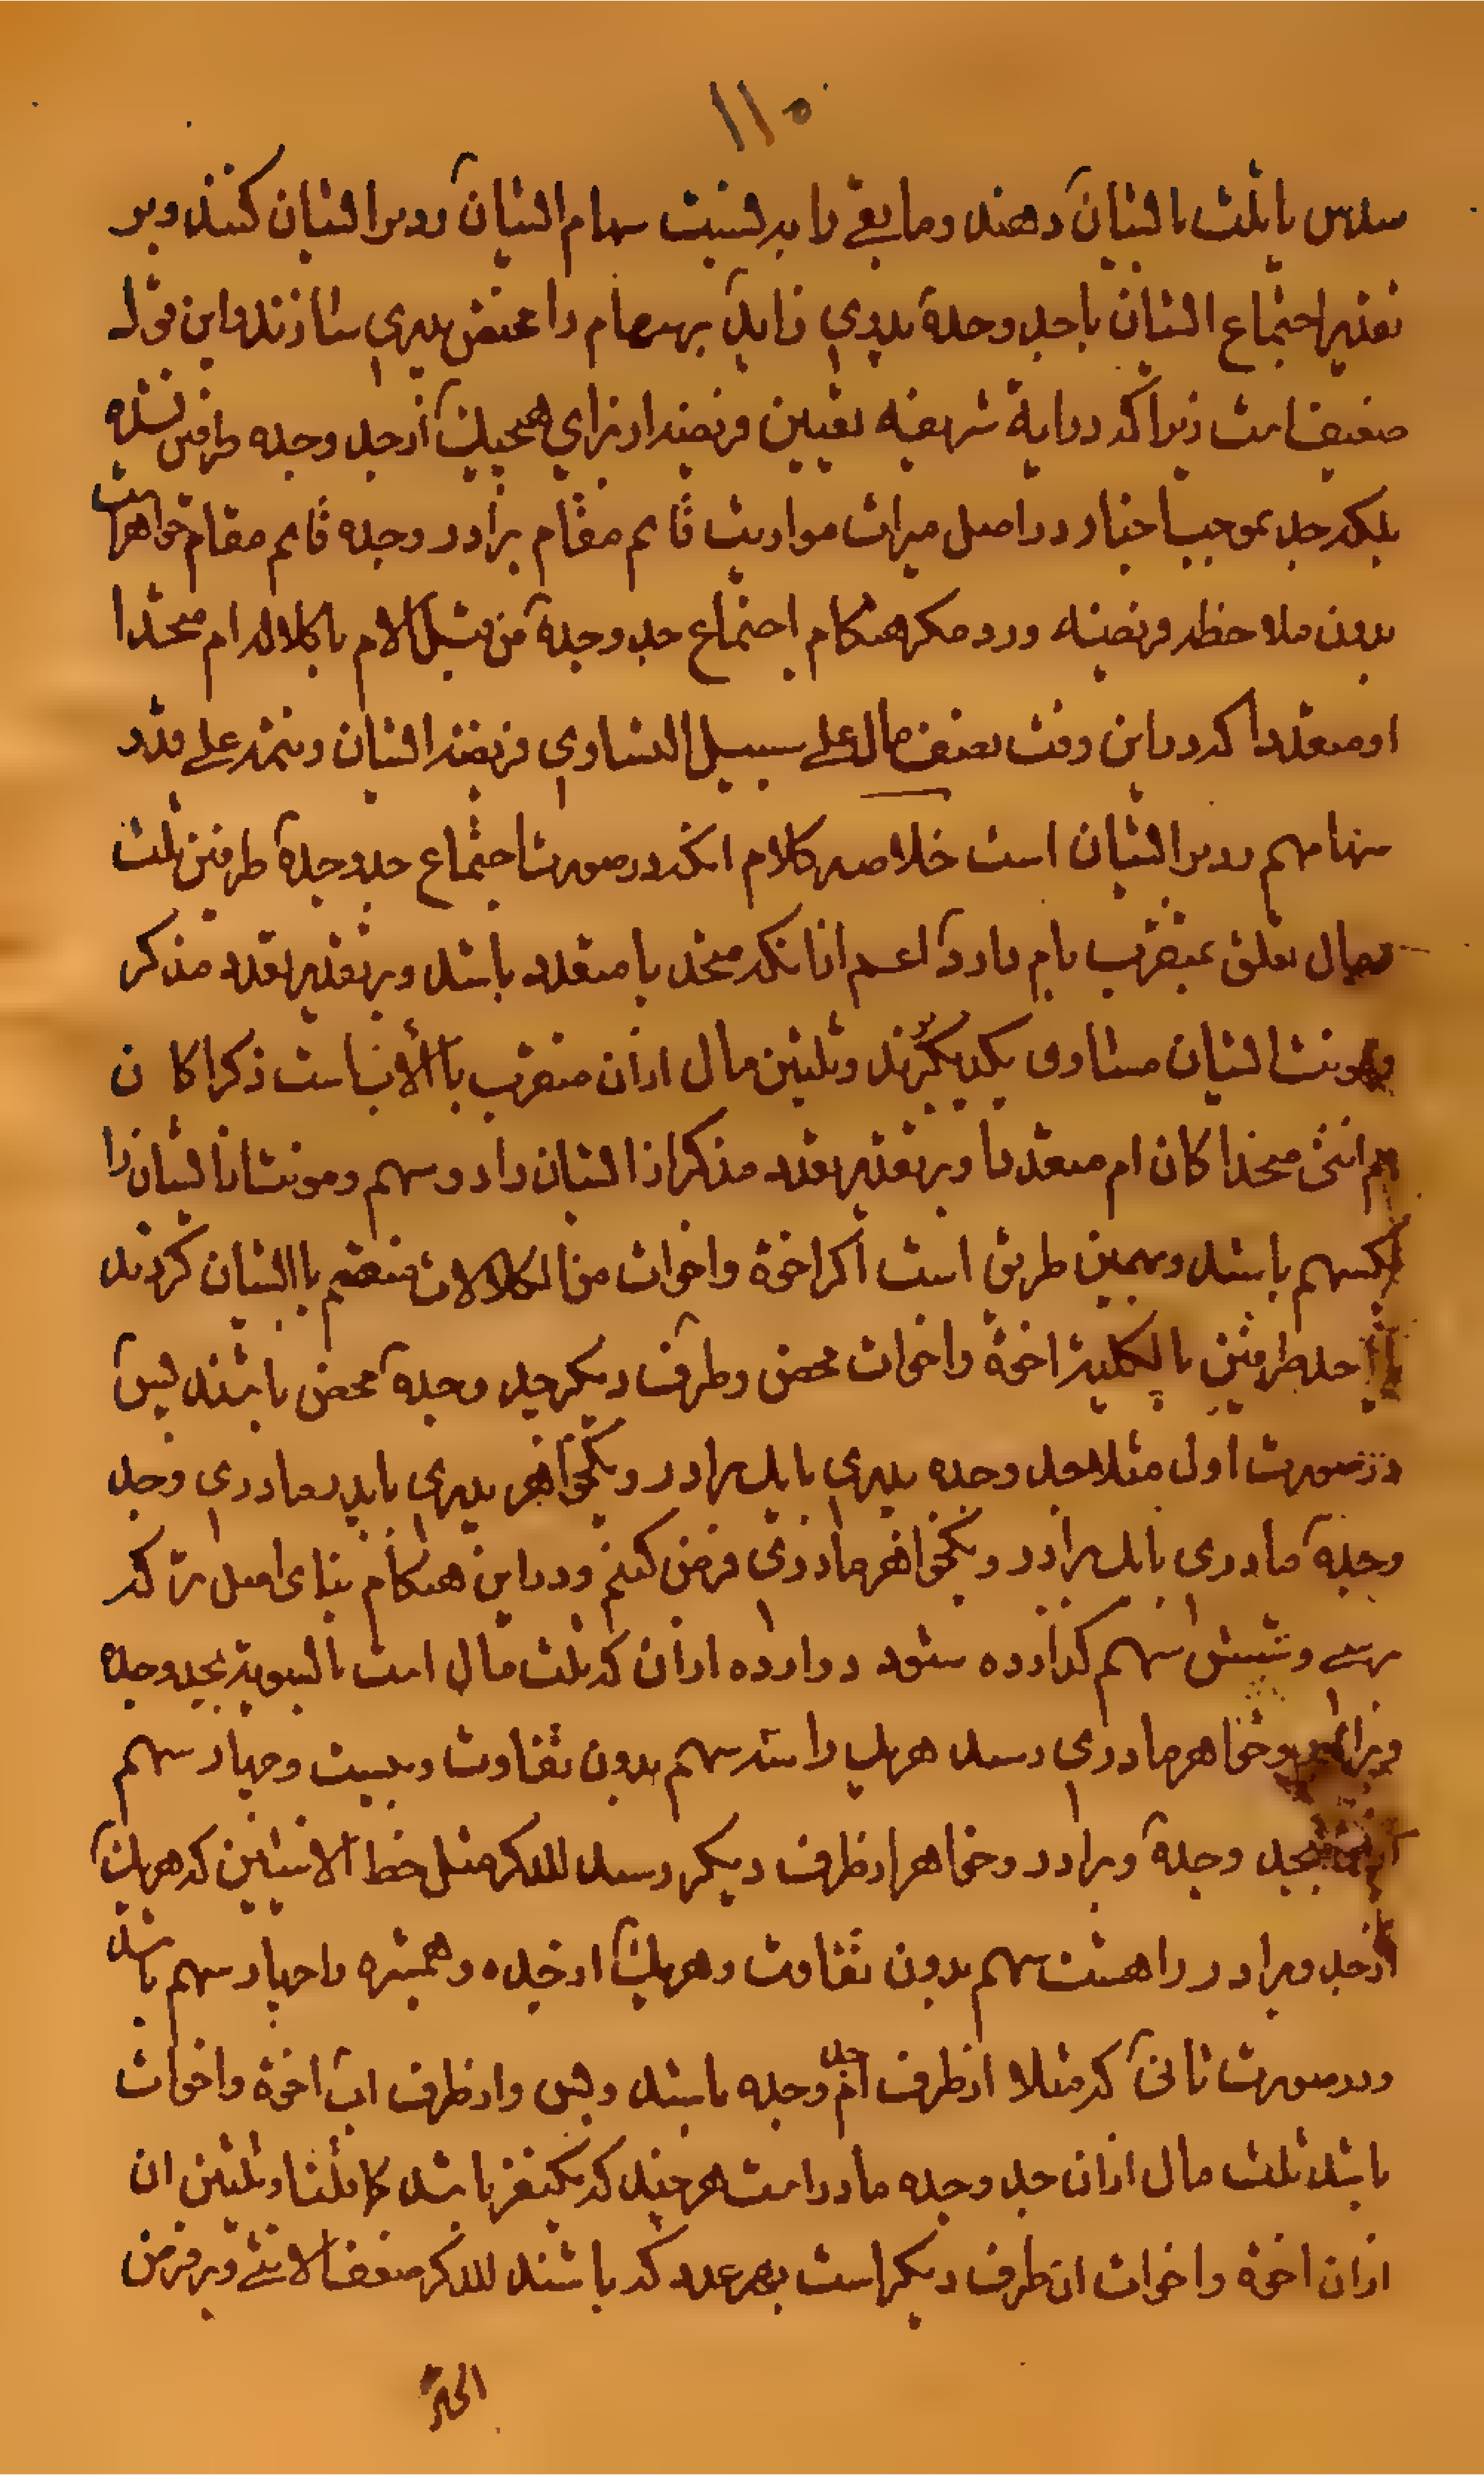 ۱۱۰
سدس یا ثلث بالیشان دهند و ما بقی را به نسبت سهام الیشان رد برالیشان کنند و بر
تقدیر اجتماع الیشان با جد وجدة پدری زاید بر سهام را مختص پدری سازند و این قول
ضعیف است زیرا که در ایة شریفه تعیین فریضه از برای هیچیک از جد وجده طرفین نشده
بلکه جد بموجب اخبار در اصل میراث مواریث قایم مقام برادر وجده قایم مقام خواهر است
بدون ملاحظه فریضه ورد مکر هنکام اجتماع جد وجدة من قبل الام با کلاله ام متحدا
او متعددا که در این وقت نصف مال علی سبیل التساوی فریضه الیشان و تتمه علی قدر
سهامهم رد برالیشان است خلاصه کلام انکه در صورت اجتماع جد وجدة طرفین ثلث
مال تعلق بمتقرب بام دارد اعم ازانکه متحد یا متعدد باشد و بر تقدیر تعدد مذکر
ومونث الیشان مساوی یکدیکرند و ثلثین مال ازان متقرب باالأب است ذکرا کان
ام انثی متحدا کان ام متعددا و بر تقدیر تعدد مذکر از الیشان را دو سهم ومونث از الیشان را
یکسهم باشد و بهمین طریق است اکر اخوة واخوات من الکلالات منضم باالیشان کردند
یا احد طرفین بالکلیه اخوة واخوات محض وطرف دیکر جد وجدة محض باشند پس
در صورت اول مثلا جد وجده پدری با یک برادر ویکخواهر پدری یا پدر مادری وجد
وجدة مادری با یک برادر ویکخواهر مادری فرض کنیم ودر این هنکام بنای اصل ترکه
بر سی وشش سهم کذارده شود دوازده ازان که ثلث مال است بالسویه بجد وجده
وبرادر وخواهر مادری رسد هریک را سه سهم بدون تفاوت وبیست وچهار سهم
بجد وجدة وبرادر وخواهر از طرف دیکر رسد للذکر مثل حظ الانثیین که هریک
از جد وبرادر را هشت سهم بدون تفاوت وهریک از جده وهمشیره را چهار سهم باشد
ودر صورت ثانی که مثلا از طرف ام جد وجده باشد وبس واز طرف اب اخوة واخوات
باشد ثلث مال ازان جد وجده مادر است هرچند که یکنفر باشد کما قلنا وثلثین ان
ازان اخوة واخوات ان طرف دیکر است بهر عدد که باشند للذکر ضعف الانثی وبر فرض